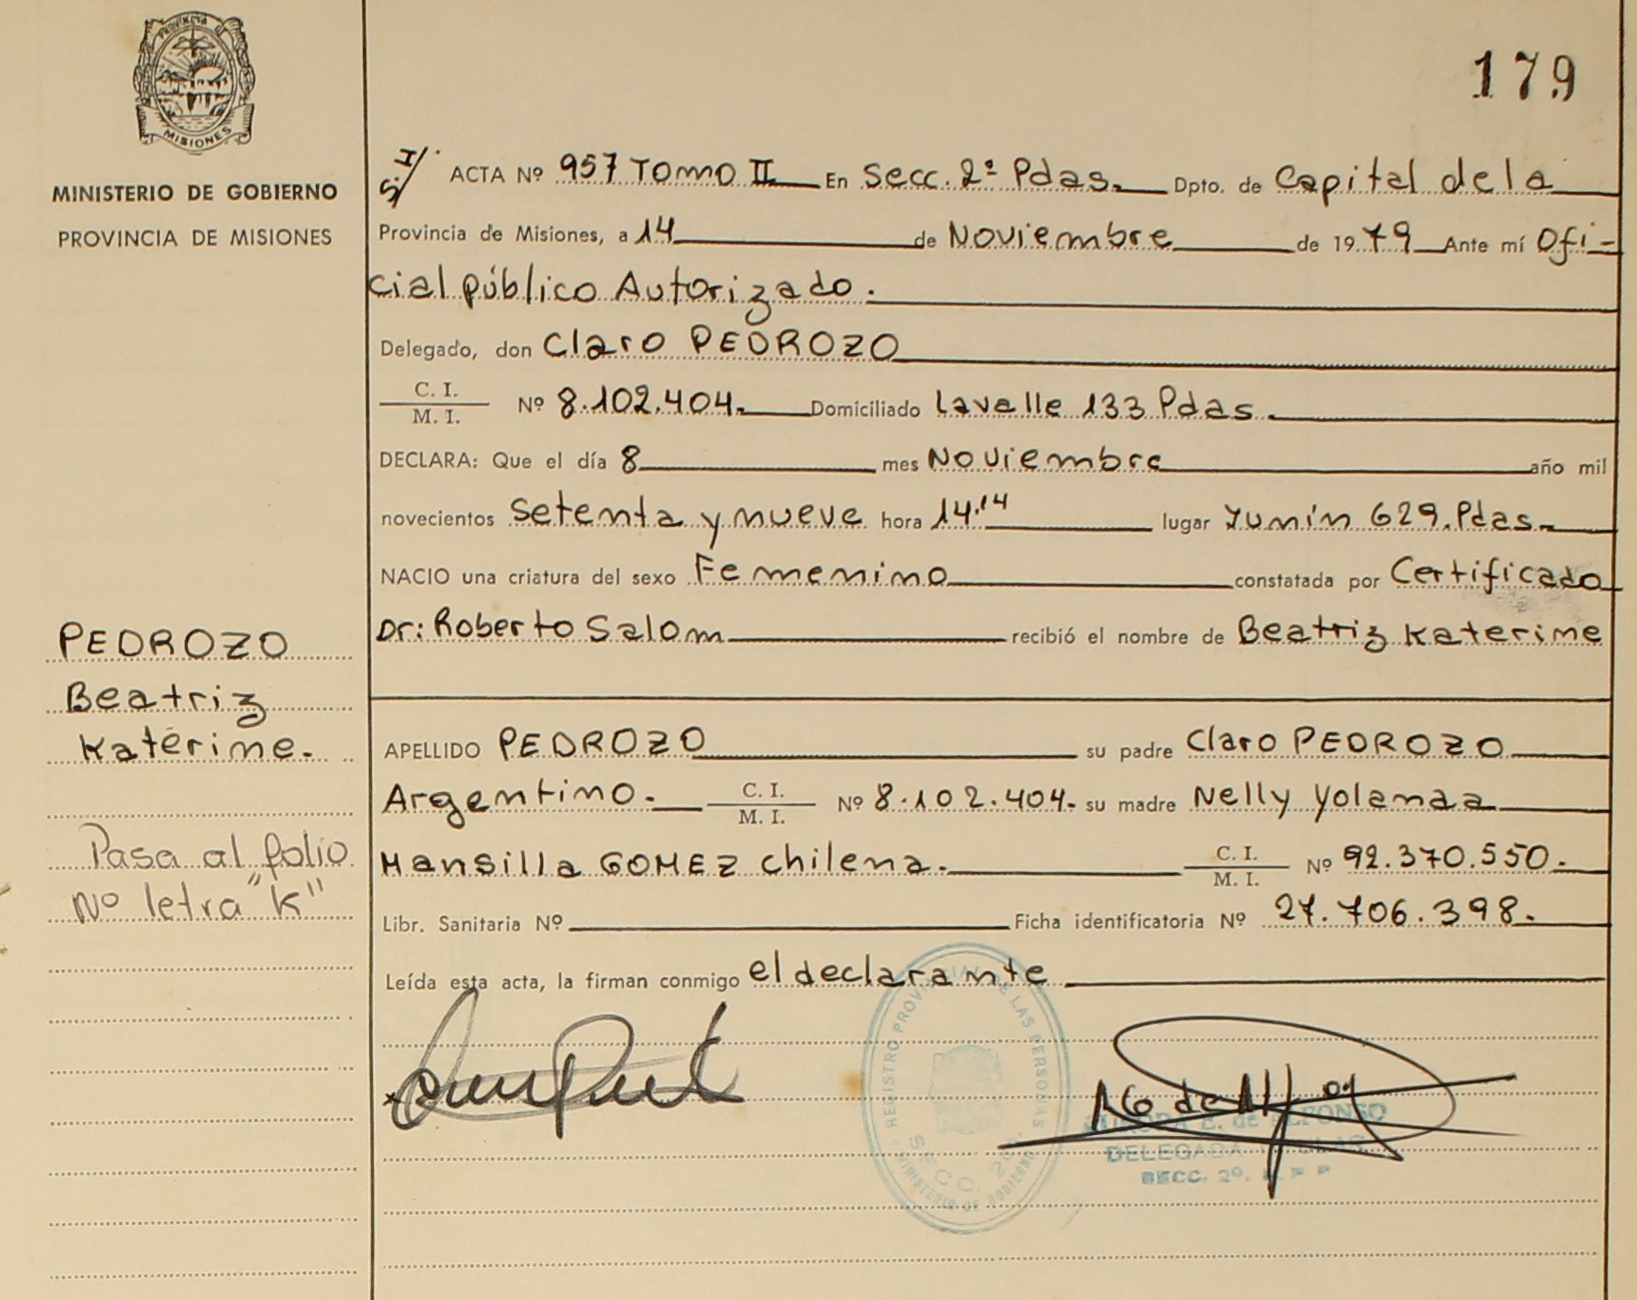 PROVINCIA DE
MISIONES
MINISTERIO DE GOBIERNO
PROVINCIA DE MISIONES
179
S/I ACTA Nº 957 Tomo II En Secc. 2ª Pdas. Dpto. de Capital de la
Provincia de Misiones, a 14 de Noviembre de 1979 Ante mí Ofi-
cial público Autorizado.
Delegado, don Claro PEDROZO
C. I.
M. I. Nº 8.102.404. Domiciliado Lavalle 133 Pdas.
DECLARA: Que el día 8 mes Noviembre año mil
novecientos setenta y nueve hora 14.14 lugar Junín 629. Pdas.
NACIO una criatura del sexo Femenino constatada por Certificado
Dr: Roberto Salom recibió el nombre de Beatriz Katerine
PEDROZO
Beatriz
Katerine.
Pasa al folio
Nº letra "K"
APELLIDO PEDROZO su padre Claro PEDROZO
Argentino. C. I.
M. I. Nº 8.102.404. su madre Nelly Yolanda
Mansilla GOMEZ chilena. C. I.
M. I. Nº 92.370.550.
Libr. Sanitaria Nº Ficha identificatoria Nº 27.706.398.
Leída esta acta, la firman conmigo el declarante
REGISTRO PROVINCIAL DE LAS PERSONAS
SECC. 2ª
MINISTERIO DE GOBIERNO
E. de ALFONSO
DELEGADA
SECC. 2º.